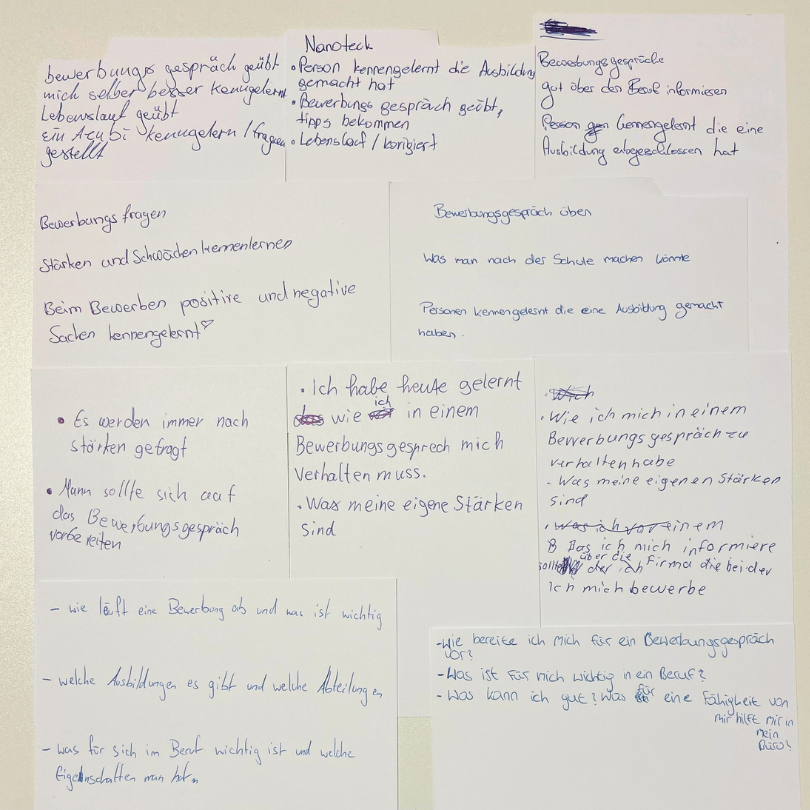 bewerbungs gespräch geübt
mich selber besser kenngelernt
Lebenslauf geübt
ein Azubi kenngelern / fragen
gestellt
Nanoteck
• Person kennengelernt die Ausbildung
gemacht hat
• Bewerbungs gespräch geübt,
tipps bekommen
• Lebenslauf / korigiert
Bewerbungsgespräche
gut über den Beruf informieren
Person kennengelernt die eine
Ausbildung abgeschlossen hat
Bewerbungsfragen
Stärken und Schwächen kennenlernen
Beim Bewerben positive und negative
Sachen kennengelernt
Bewerbungsgespräch üben
Was man nach der Schule machen könnte
Personen kennengelernt die eine Ausbildung gemacht
haben.
• Es werden immer nach
stärken gefragt
• Mann sollte sich auf
das Bewerbungsgespräch
vorbereiten
• Ich habe heute gelernt
wie ich in einem
Bewerbungsgesprech mich
Verhalten muss.
• Was meine eigene Stärken
sind
• Wie ich mich in einem
Bewerbungsgespräch zu
verhalten habe
• Was meine eigenen Stärken
sind
• Was ich vor einem
Das ich mich informiere
sollte über die Firma die bei der
Ich mich bewerbe
- wie läuft eine Bewerbung ab und was ist wichtig
- welche Ausbildungen es gibt und welche Abteilungen
- was für sich im Beruf wichtig ist und welche
Eigenschaften man hat
- Wie bereite ich mich für ein Bewerbungsgespräch
vor?
- Was ist für mich wichtig in ein Beruf?
- Was kann ich gut? Was für eine Fähigkeit von
mir hilft mir in
mein
Büro?